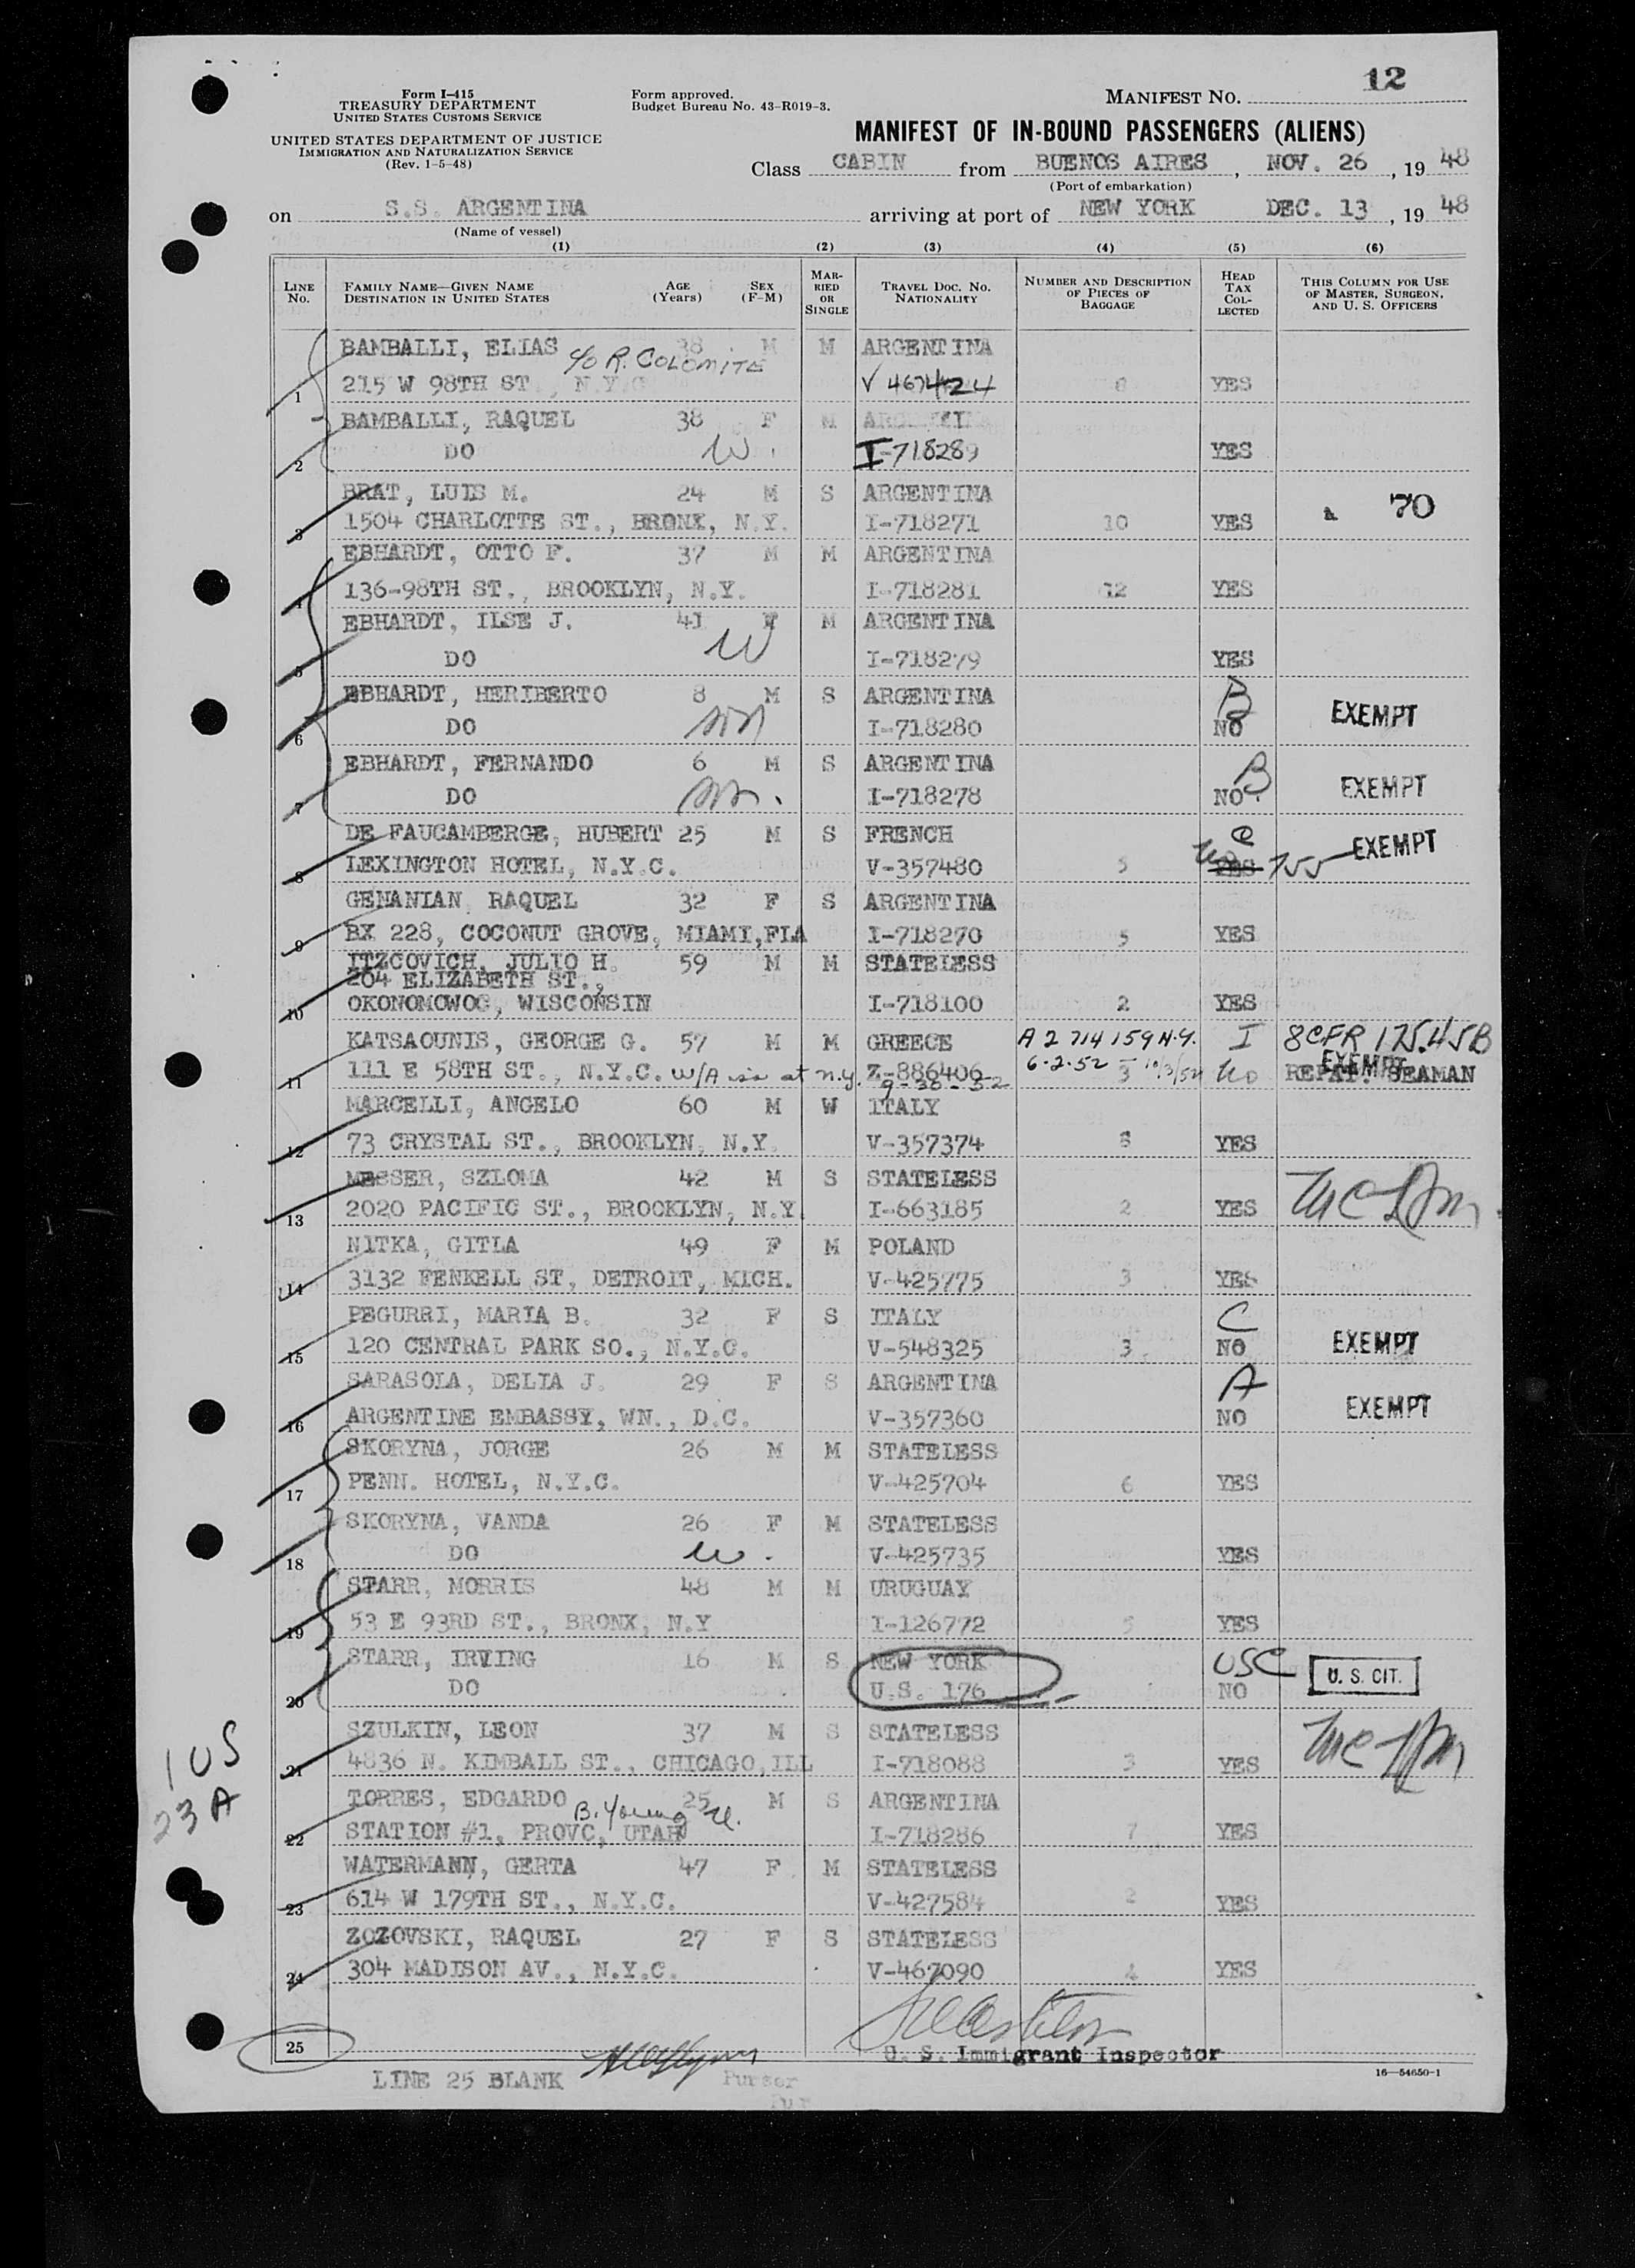 12
Form I-415
TREASURY DEPARTMENT
UNITED STATES CUSTOMS SERVICE
UNITED STATES DEPARTMENT OF JUSTICE
IMMIGRATION AND NATURALIZATION SERVICE
(Rev. 1-5-48)
Form approved.
Budget Bureau No. 43-R019-3.
MANIFEST NO.
MANIFEST OF IN-BOUND PASSENGERS (ALIENS)
Class CABIN from BUENOS AIRES, NOV. 26, 1948
(Port of embarkation)
on S.S. ARGENTINA arriving at port of NEW YORK DEC. 13, 1948
(Name of vessel)
(1) (2) (3) (4) (5) (6)
LINE NO. FAMILY NAME—GIVEN NAME DESTINATION IN UNITED STATES AGE (Years) SEX (F-M) MARRIED OR SINGLE TRAVEL DOC. NO. NATIONALITY NUMBER AND DESCRIPTION OF PIECES OF BAGGAGE HEAD TAX COLLECTED THIS COLUMN FOR USE OF MASTER, SURGEON, AND U. S. OFFICERS
BAMBALLI, ELIAS 38 M M ARGENTINA
c/o R. COLOMITE
1 215 W 98TH ST., N.Y.C V 467424 8 YES
BAMBALLI, RAQUEL 38 F M
2 DO W. I-718289 YES
BRAT, LUIS M. 24 M S ARGENTINA
3 1504 CHARLOTTE ST., BRONX, N.Y. I-718271 10 YES 70
EBHARDT, OTTO F. 37 M M ARGENTINA
4 136-98TH ST., BROOKLYN, N.Y. I-718281 12 YES
EBHARDT, ILSE J. 41 F M ARGENTINA
5 DO W I-718279 YES
EBHARDT, HERIBERTO 8 M S ARGENTINA B EXEMPT
6 DO son I-718280 NO
EBHARDT, FERNANDO 6 M S ARGENTINA B EXEMPT
7 DO son. I-718278 NO
DE FAUCAMBERGE, HUBERT 25 M S FRENCH C EXEMPT
8 LEXINGTON HOTEL, N.Y.C. V-357480 5 No YES
GENANIAN, RAQUEL 32 F S ARGENTINA
9 BX 228, COCONUT GROVE, MIAMI,FLA I-718270 5 YES
ITZCOVICH, JULIO H. 59 M M STATELESS
204 ELIZABETH ST.,
10 OKONOMOWOC, WISCONSIN I-718100 2 YES
KATSAOUNIS, GEORGE G. 57 M M GREECE A2 714 159 N.Y. I 8CFR 175.45B
6-2-52 - 10/3/52 EXEMPT
11 111 E 58TH ST., N.Y.C. W/A iss at n.y. Z-886406 3 No REPAT. SEAMAN
9-30-52
MARCELLI, ANGELO 60 M W ITALY
12 73 CRYSTAL ST., BROOKLYN, N.Y. V-357374 8 YES
MESSER, SZLOMA 42 M S STATELESS
13 2020 PACIFIC ST., BROOKLYN, N.Y. I-663185 2 YES
NITKA, GITLA 49 F M POLAND
14 3132 FENKELL ST, DETROIT, MICH. V-425775 3 YES
PEGURRI, MARIA B. 32 F S ITALY C
15 120 CENTRAL PARK SO., N.Y.C. V-548325 3 NO EXEMPT
SARASOLA, DELIA J. 29 F S ARGENTINA A
16 ARGENTINE EMBASSY, WN., D.C. V-357360 NO EXEMPT
SKORYNA, JORGE 26 M M STATELESS
17 PENN. HOTEL, N.Y.C. V-425704 6 YES
SKORYNA, VANDA 26 F M STATELESS
18 DO W. V-425735 YES
STARR, MORRIS 48 M M URUGUAY
19 53 E 93RD ST., BRONX, N.Y I-126772 5 YES
STARR, IRVING 16 M S NEW YORK USC U. S. CIT.
20 DO U.S. 176 NO
SZULKIN, LEON 37 M S STATELESS
1 US
21 4836 N. KIMBALL ST., CHICAGO,ILL I-718088 3 YES
23 A
TORRES, EDGARDO 25 M S ARGENTINA
B. Young U.
22 STATION #1, PROVO, UTAH I-718286 7 YES
WATERMANN, GERTA 47 F M STATELESS
23 614 W 179TH ST., N.Y.C. V-427584 2 YES
ZOZOVSKI, RAQUEL 27 F S STATELESS
24 304 MADISON AV., N.Y.C. V-467090 4 YES
25
U. S. Immigrant Inspector
LINE 25 BLANK Purser
16—54650-1